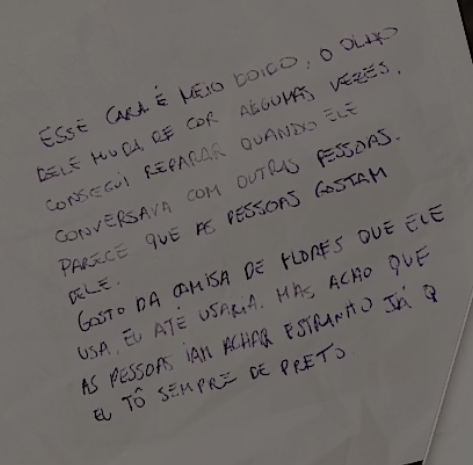 ESSE CARA É MEIO DOIDO, O OLHO
DELE MUDA DE COR ALGUMAS VEZES,
CONSEGUI REPARAR QUANDO ELE
CONVERSAVA COM OUTRAS PESSOAS.
PARECE QUE AS PESSOAS GOSTAM
DELE.
GOSTO DA CAMISA DE FLORES QUE ELE
USA, EU ATÉ USARIA. MAS ACHO QUE
AS PESSOAS IAM ACHAR ESTRANHO JÁ Q
EU TÔ SEMPRE DE PRETO